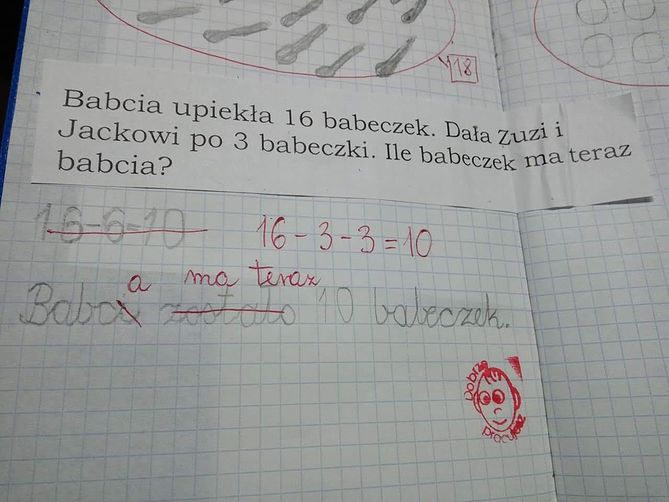 18
Babcia upiekła 16 babeczek. Dała Zuzi i
Jackowi po 3 babeczki. Ile babeczek ma teraz
babcia?
16-6=10 16-3-3=10
a ma teraz
Babci zostało 10 babeczek.
Dobrze
pracujesz